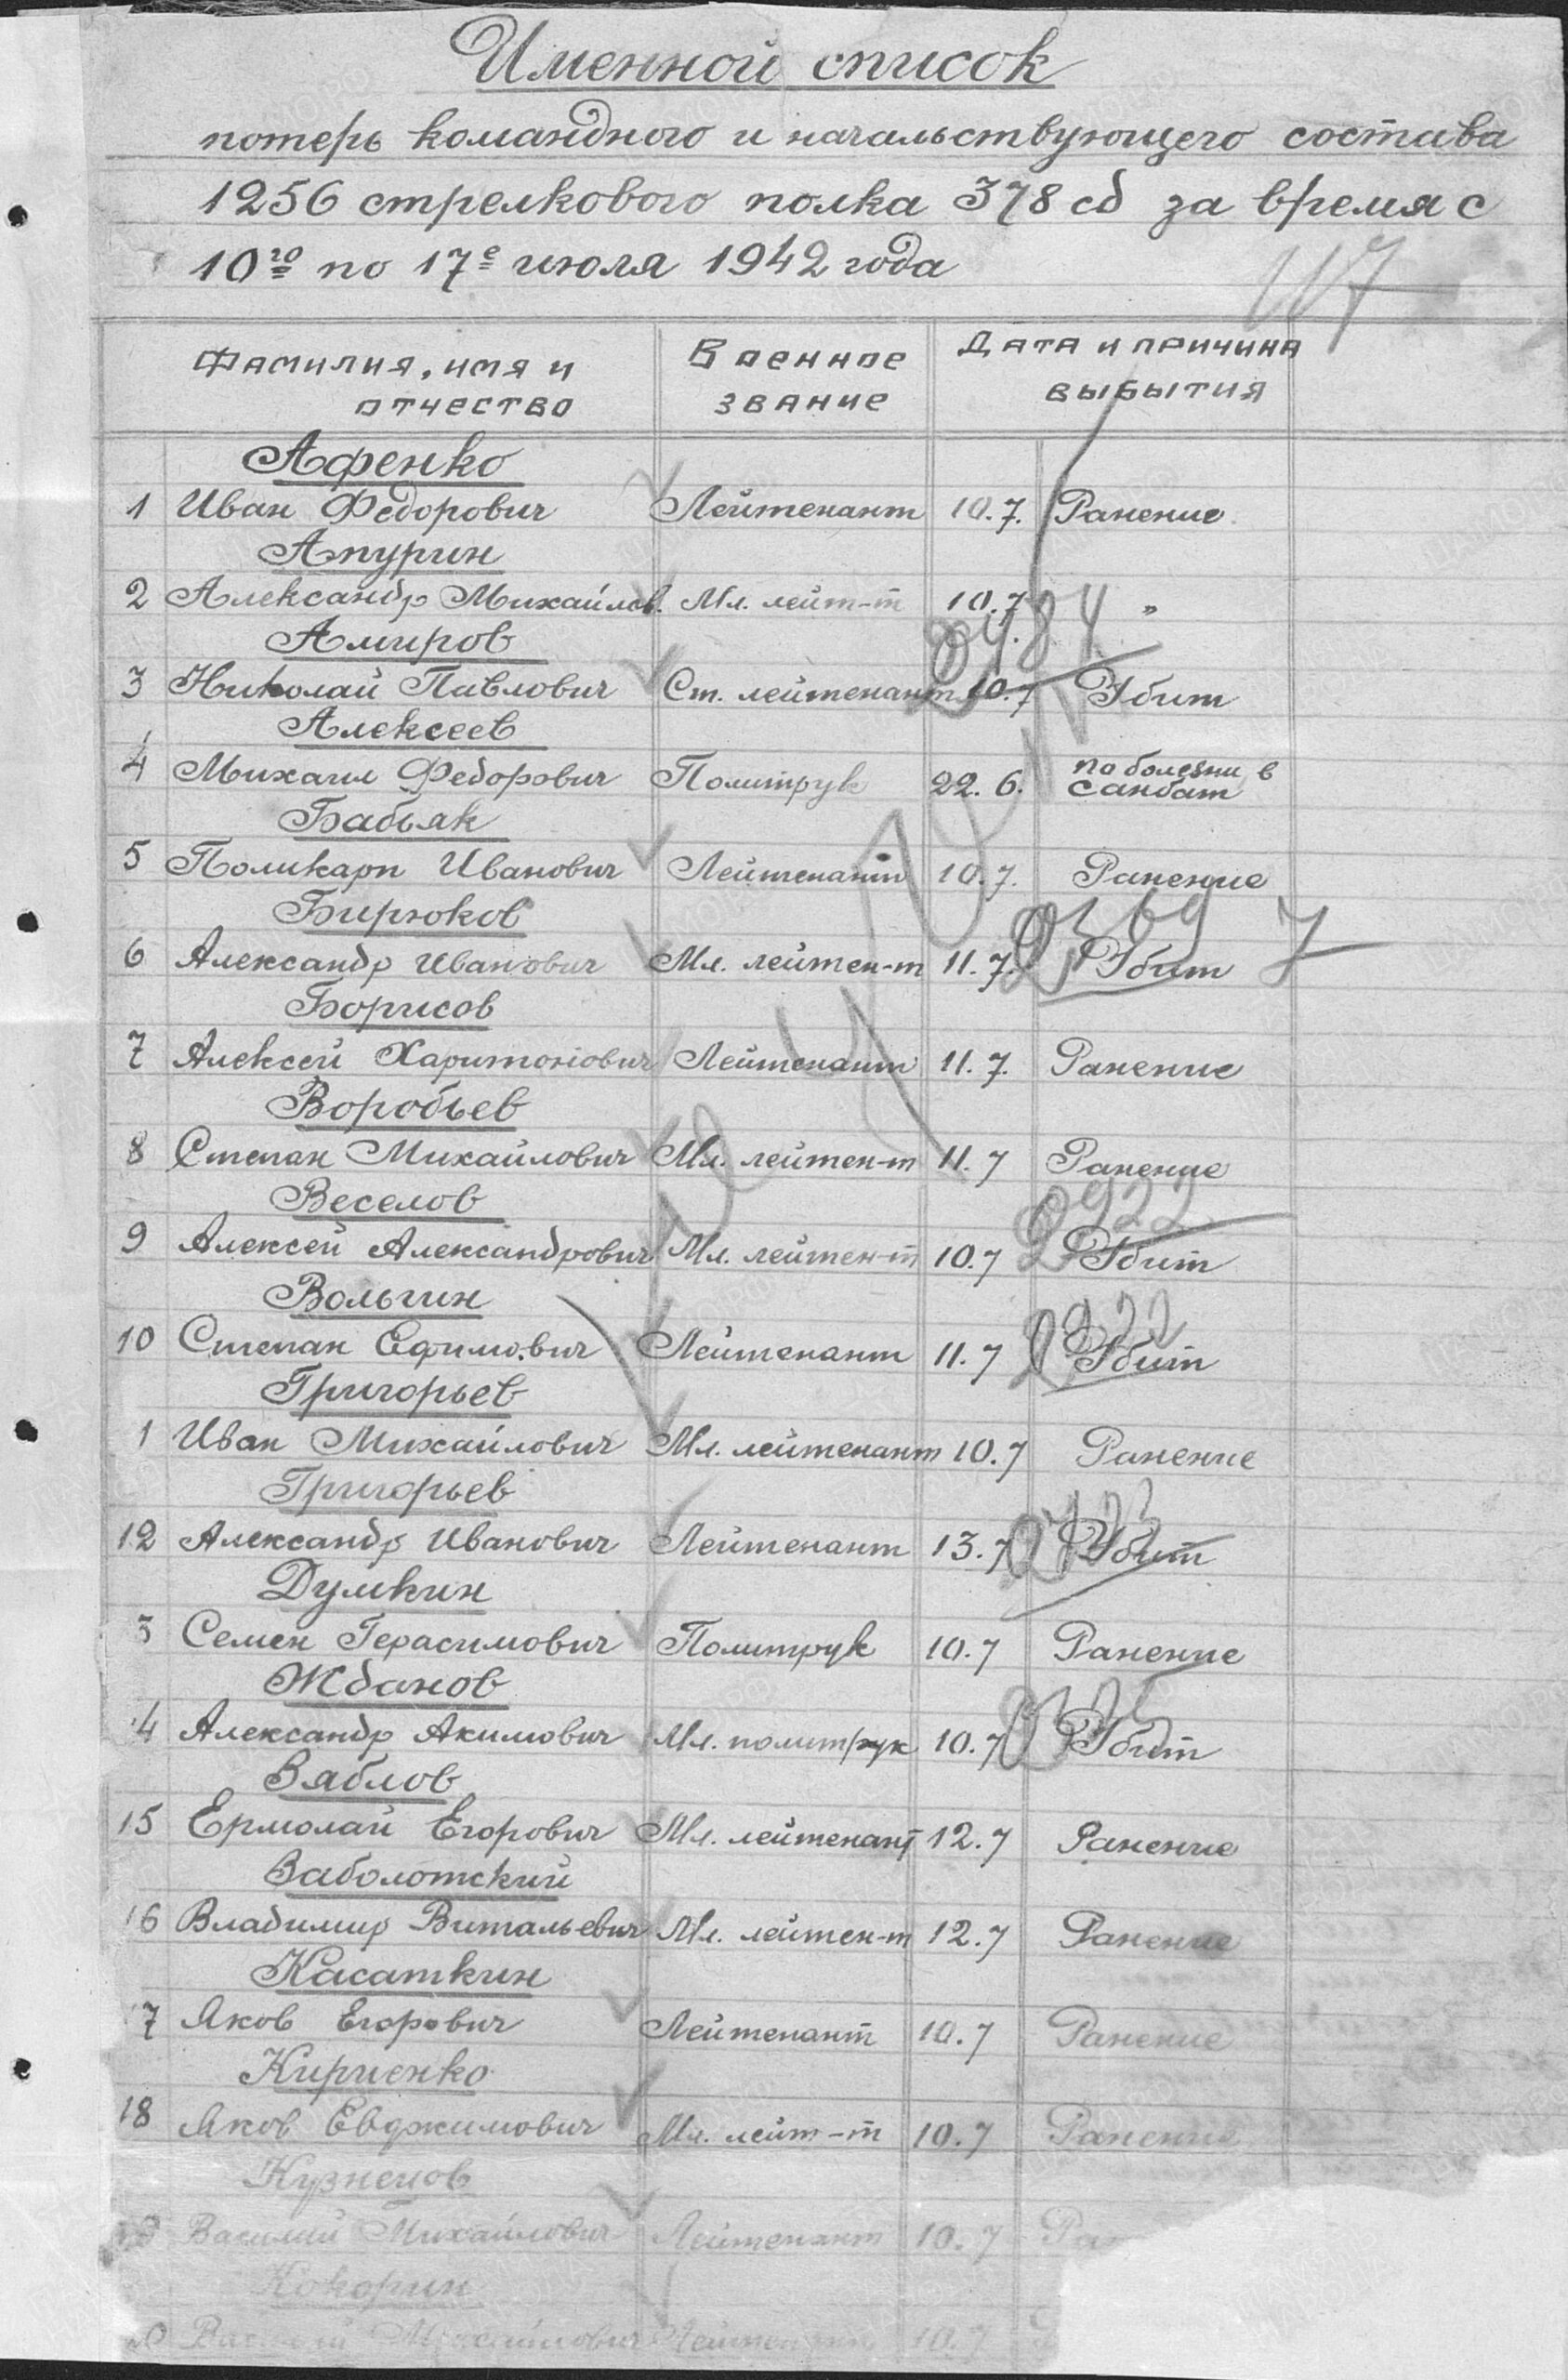 Именной список
потерь командного и начальствующего состава
1256 стрелкового полка 378 сд за время с
10го по 17е июля 1942 года
117
Фамилия, имя и отчество Военное звание Дата и причина выбытия
Афенко
1 Иван Федорович Лейтенант 10.7. Ранение
Апурин
2 Александр Михайлов. Мл. лейт-т 10.7 "
Амиров
3 Николай Павлович Ст. лейтенант 10.7 Убит
Алексеев
4 Михаил Федорович Политрук 22.6. по болезни в санбат
Бабьяк
5 Поликарп Иванович Лейтенант 10.7. Ранение
Бирюков
6 Александр Иванович Мл. лейтен-т 11.7. Убит
Борисов
7 Алексей Харитонович Лейтенант 11.7. Ранение
Воробьев
8 Степан Михайлович Мл. лейтен-т 11.7 Ранение
Веселов
9 Алексей Александрович Мл. лейтен-т 10.7 Убит
Вольгин
10 Степан Ефимович Лейтенант 11.7 Убит
Григорьев
1 Иван Михайлович Мл. лейтенант 10.7 Ранение
Григорьев
12 Александр Иванович Лейтенант 13.7 Убит
Думкин
3 Семен Герасимович Политрук 10.7 Ранение
Жбанов
4 Александр Акимович Мл. политрук 10.7 Убит
Зяблов
15 Ермолай Егорович Мл. лейтенант 12.7 Ранение
Заболотский
16 Владимир Витальевич Мл. лейтен-т 12.7 Ранение
Касаткин
7 Яков Егорович Лейтенант 10.7 Ранение
Кириенко
18 Яков Евджимович Мл. лейт-т 10.7 Ранение
Кузнецов
Василий Михайлович Лейтенант 10.7 Ран
Кокорин
Василий Михайлович Лейтенант 10.7